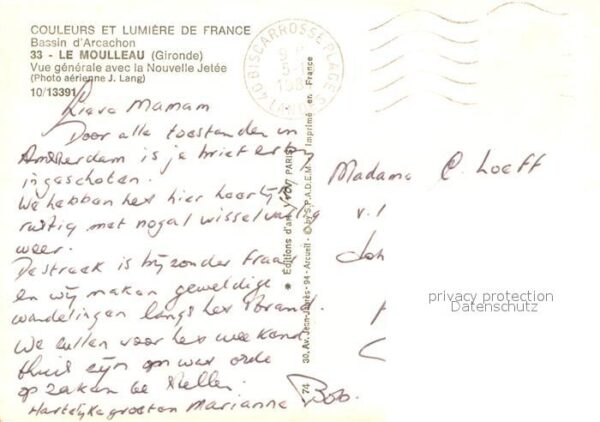 COULEURS ET LUMIÈRE DE FRANCE
Bassin d'Arcachon
33 - LE MOULLEAU (Gironde)
Vue générale avec la Nouvelle Jetée
(Photo aérienne J. Lang)
10/13391
40 BISCARROSSE PLAGE
LANDES
Lieve Mamam
Door alle toestanden in
Amsterdam is je brief erbij
ingeschoten.
We hebben het hier heerlijk
rustig met nogal wisselvallig
weer.
De streek is bijzonder fraai
en wij maken geweldige
wandelingen langs het strand.
We zullen voor het weekend
thuis zijn om wat orde
op zaken te stellen.
Hartelijke groeten Marianne Bob.
Editions d'art yvon PARIS
30, Av. Jean-Jaurès - 94 - Arcueil - © by S.P.A.D.E.M.
Imprimé en France
74
Madame C. Loeff
v.
Joh
privacy protection
Datenschutz